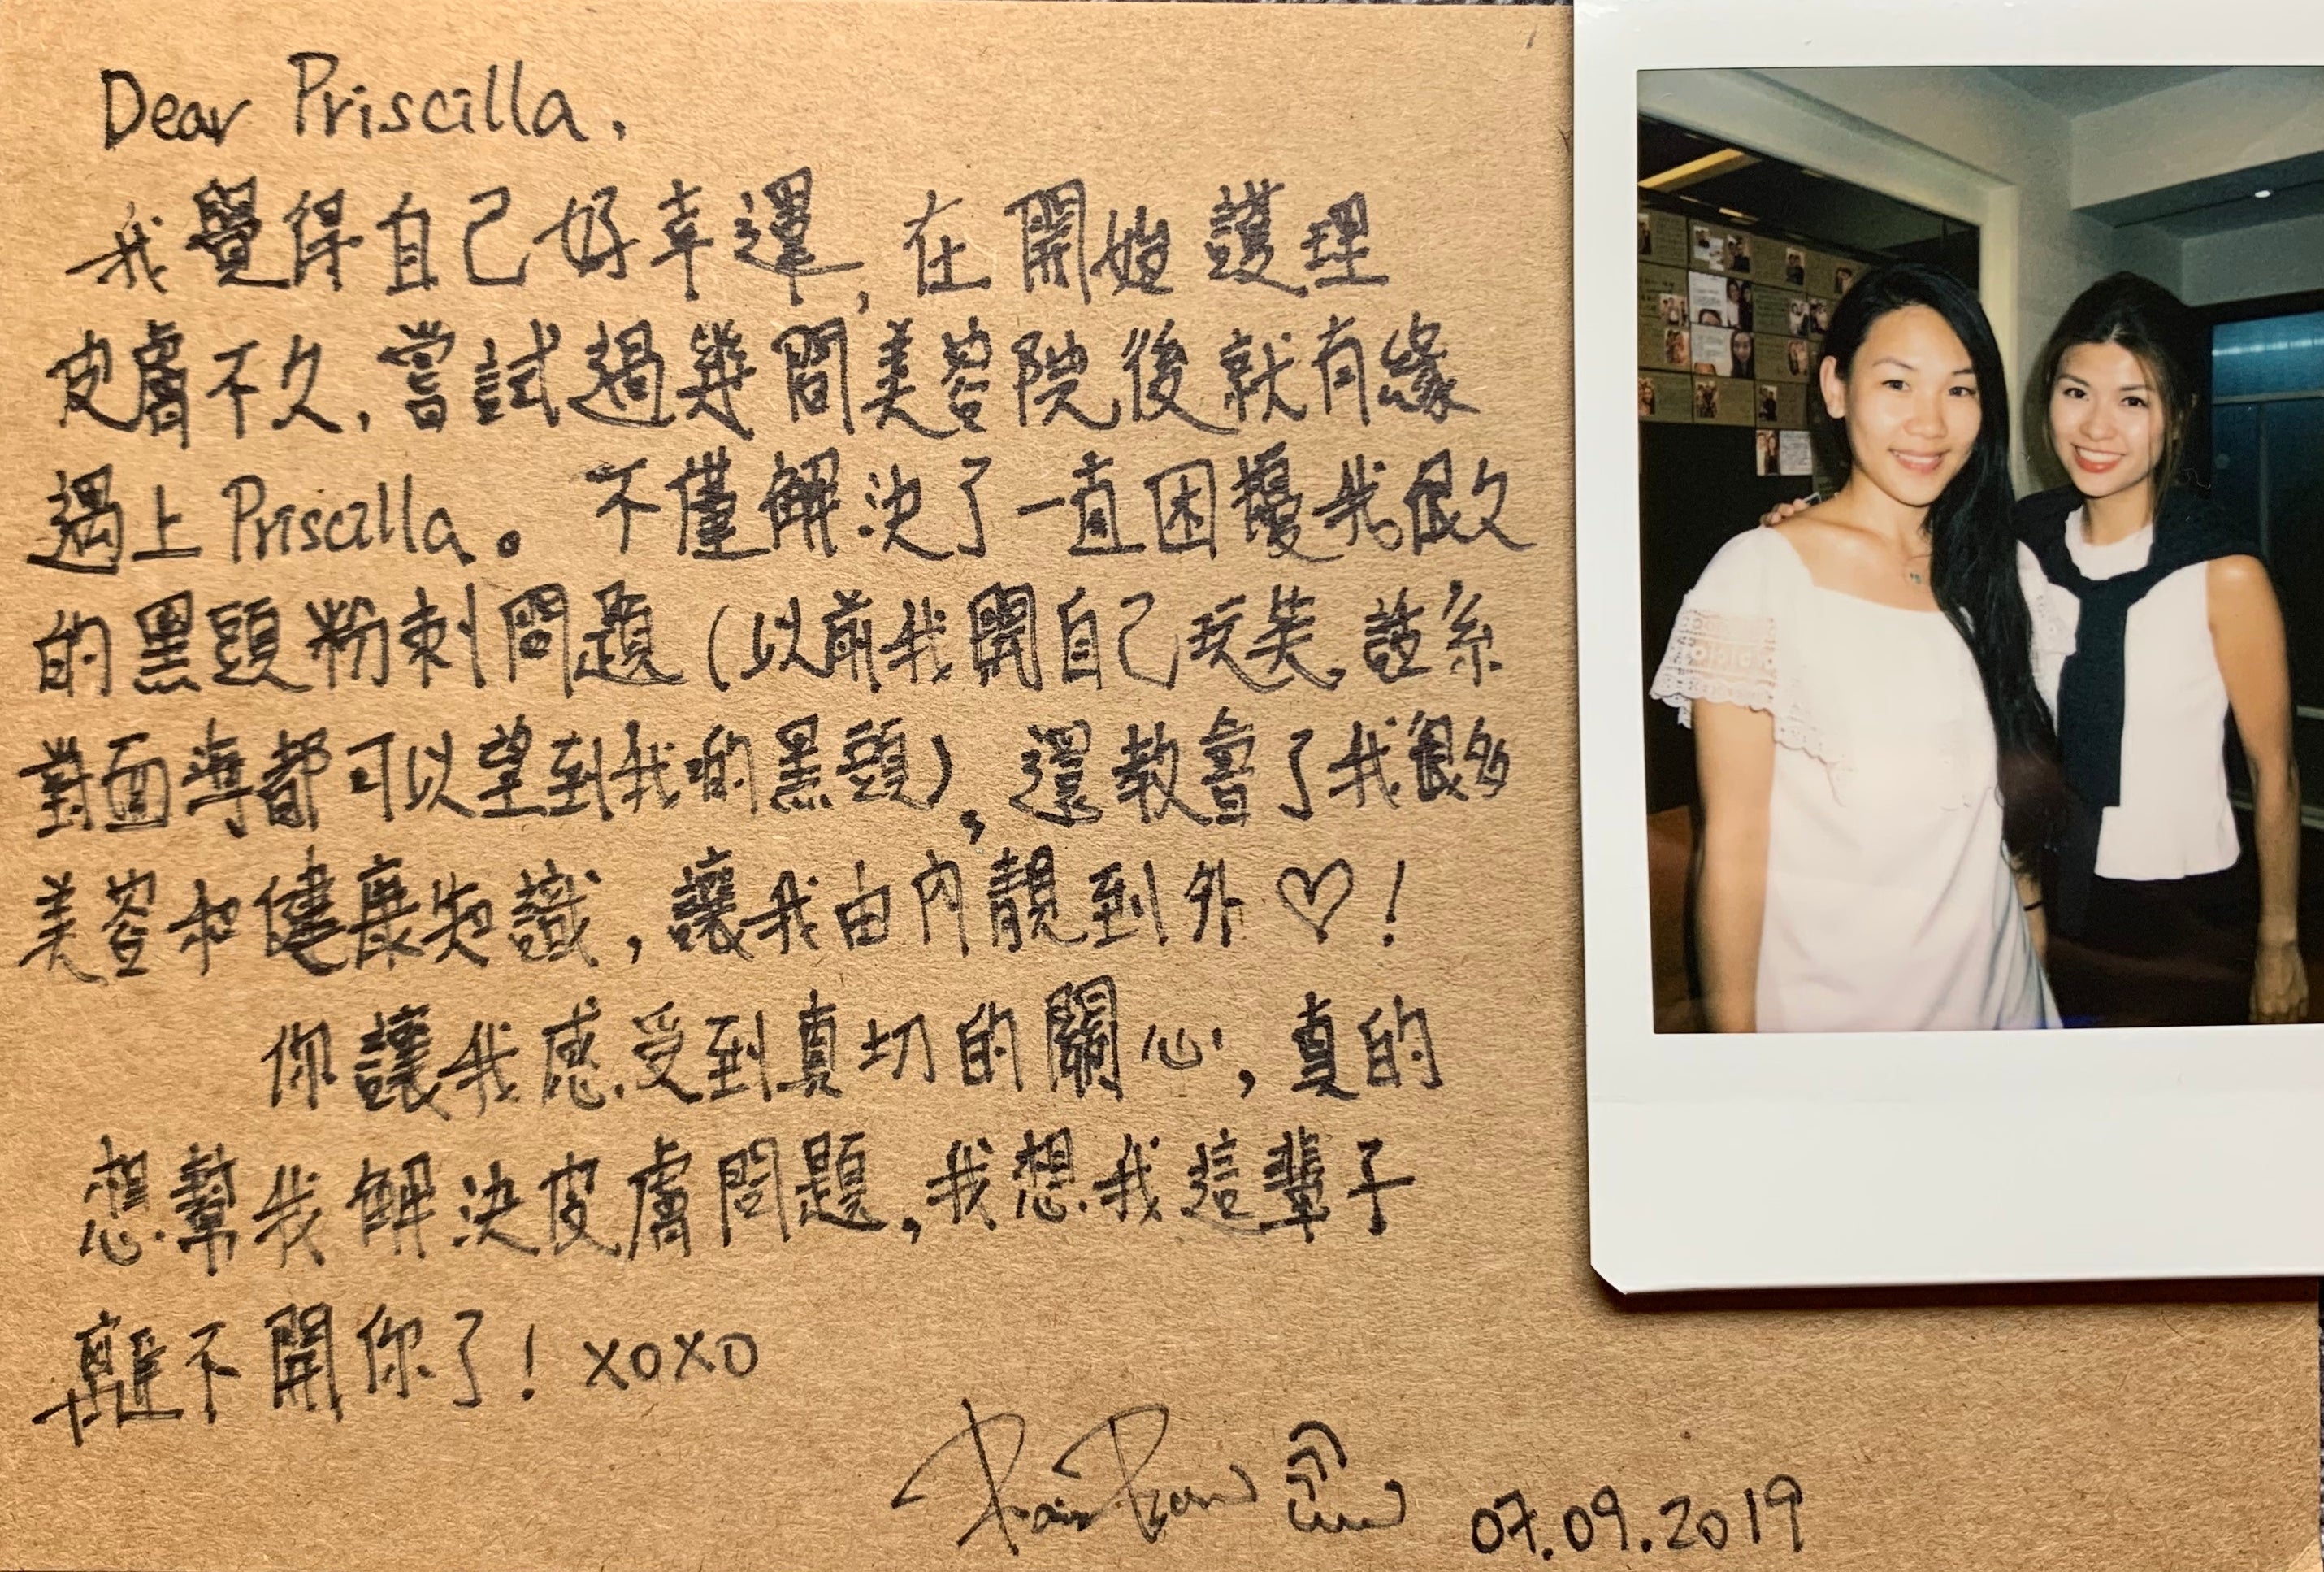 Dear Priscilla,
我覺得自己好幸運, 在開始護理
皮膚不久, 嘗試過幾間美容院後就有緣
遇上Priscilla。不僅解決了一直困擾我很久
的黑頭粉刺問題 (以前我開自己玩笑, 話係
對面海都可以望到我的黑頭), 還教會了我很多
美容和健康知識, 讓我由內靚到外♡!
你讓我感受到真切的關心, 真的
想幫我解決皮膚問題, 我想我這輩子
離不開你了! xoxo
07.09.2019